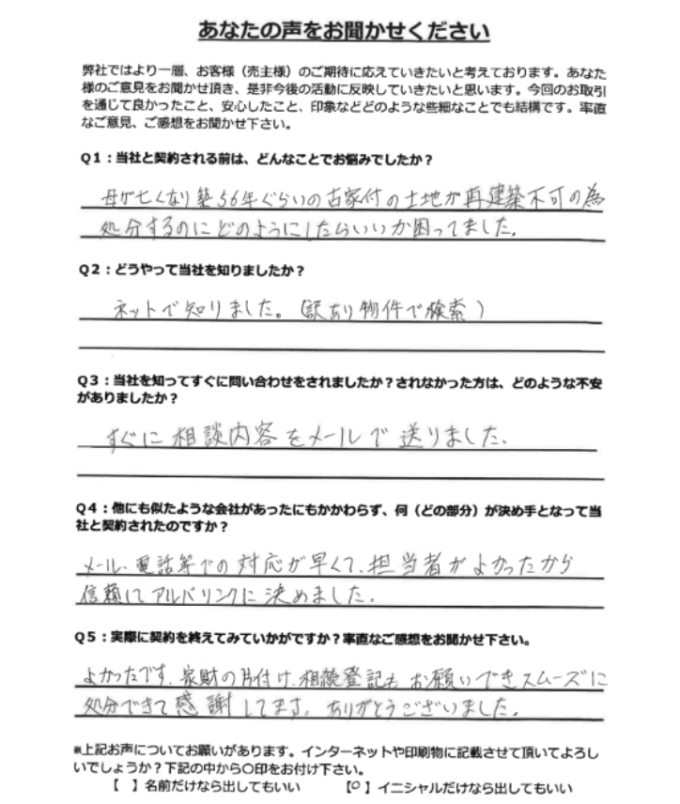 あなたの声をお聞かせください
弊社ではより一層、お客様（売主様）のご期待に応えていきたいと考えております。あなた
様のご意見をお聞かせ頂き、是非今後の活動に反映していきたいと思います。今回のお取引
を通じて良かったこと、安心したこと、印象などどのような些細なことでも結構です。率直
なご意見、ご感想をお聞かせ下さい。
Q1：当社と契約される前は、どんなことでお悩みでしたか？
母が亡くなり築56年ぐらいの古家付の土地が再建築不可の為
処分するのにどのようにしたらいいか困ってました。
Q2：どうやって当社を知りましたか？
ネットで知りました。（訳あり物件で検索）
Q3：当社を知ってすぐに問い合わせをされましたか？されなかった方は、どのような不安
がありましたか？
すぐに相談内容をメールで送りました。
Q4：他にも似たような会社があったにもかかわらず、何（どの部分）が決め手となって当
社と契約されたのですか？
メール、電話等での対応が早くて、担当者がよかったから
信頼してアルバリンクに決めました。
Q5：実際に契約を終えてみていかがですか？率直なご感想をお聞かせ下さい。
よかったです。家財の片付け、相続登記もお願いできスムーズに
処分できて感謝してます。ありがとうございました。
※上記お声についてお願いがあります。インターネットや印刷物に記載させて頂いてよろし
いでしょうか？下記の中から〇印をお付け下さい。
【　】名前だけなら出してもいい　【〇】イニシャルだけなら出してもいい